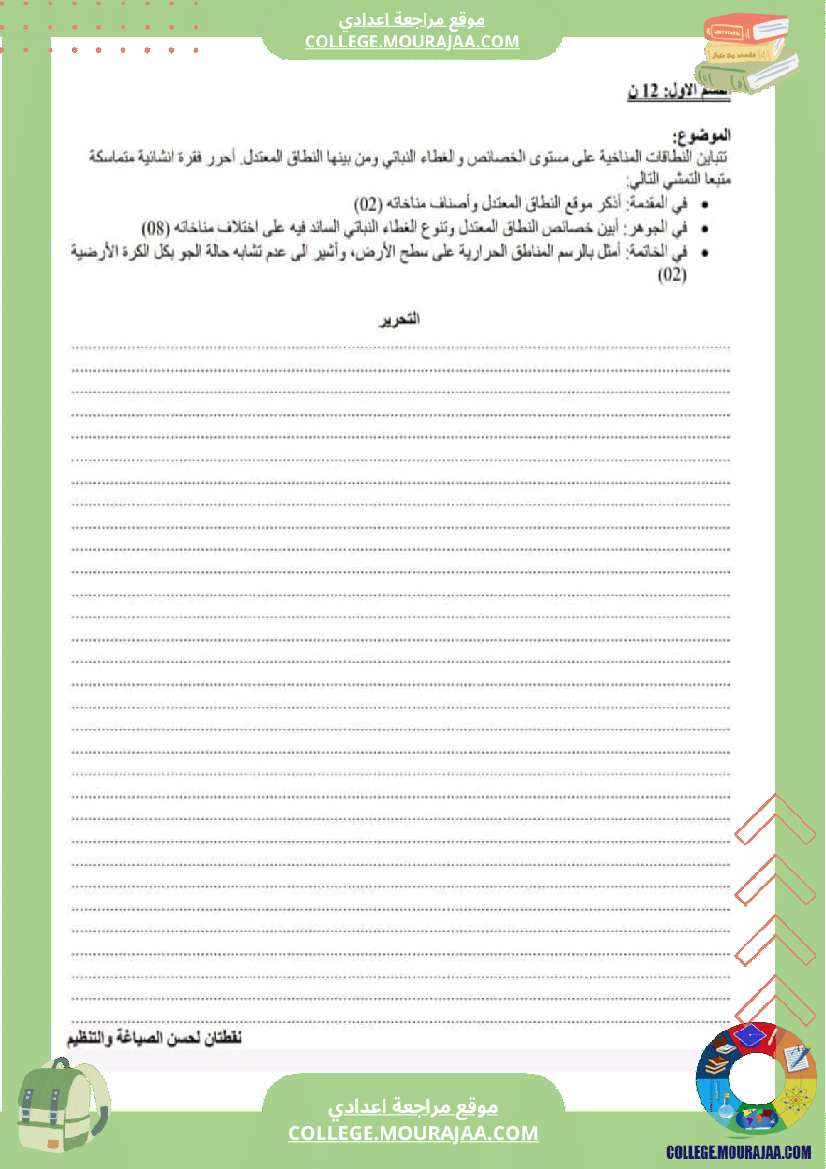 موقع مراجعة اعدادي
COLLEGE.MOURAJAA.COM
القسم الاول: 12 ن
الموضوع:
تتباين النطاقات المناخية على مستوى الخصائص والغطاء النباتي ومن بينها النطاق المعتدل. أحرر فقرة انشائية متماسكة
متبعا التمشي التالي:
• في المقدمة: أذكر موقع النطاق المعتدل وأصناف مناخاته (02)
• في الجوهر: أبين خصائص النطاق المعتدل وتنوع الغطاء النباتي السائد فيه على اختلاف مناخاته (08)
• في الخاتمة: أمثل بالرسم المناطق الحرارية على سطح الأرض، وأشير الى عدم تشابه حالة الجو بكل الكرة الأرضية
(02)
التحرير
نقطتان لحسن الصياغة والتنظيم
موقع مراجعة اعدادي
COLLEGE.MOURAJAA.COM
COLLEGE.MOURAJAA.COM